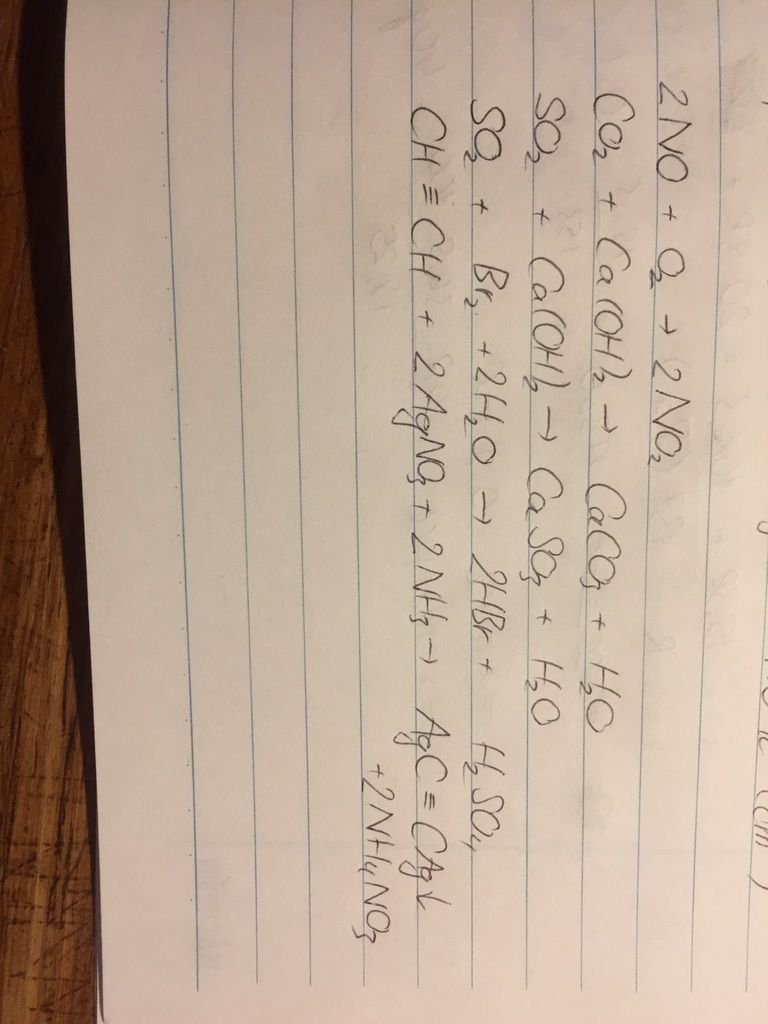 2NO + O₂ → 2NO₂
CO₂ + Ca(OH)₂ → CaCO₃ + H₂O
SO₂ + Ca(OH)₂ → CaSO₃ + H₂O
SO₂ + Br₂ + 2H₂O → 2HBr + H₂SO₄
CH ≡ CH + 2AgNO₃ + 2NH₃ → AgC ≡ CAg↓
+ 2NH₄NO₃